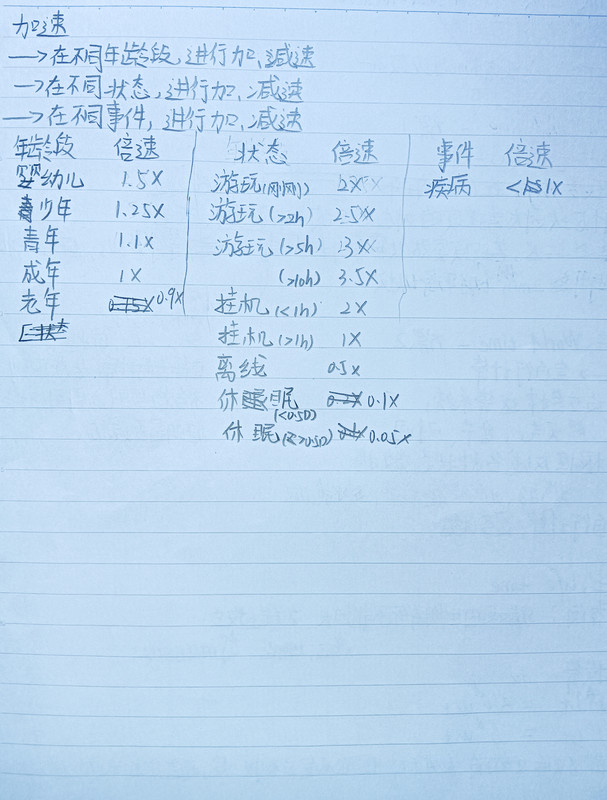 加速
→在不同年龄段,进行加、减速
→在不同状态,进行加、减速
→在不同事件,进行加、减速
年龄段 倍速 状态 倍速 事件 倍速
婴幼儿 1.5X 游玩(刚刚) 2X 疾病 <1X
青少年 1.25X 游玩(>2h) 2.5X
青年 1.1X 游玩(>5h) 3X
成年 1X (>10h) 3.5X
老年 0.9X 挂机(<1h) 2X
挂机(>1h) 1X
离线 0.5X
休眠(<0.5D) 0.1X
休眠(≥0.5D) 0.05X